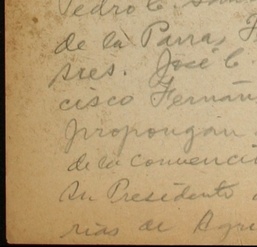 Pedro C.
de la Parra,
sres. José C.
cisco Fernán
propongan
de la convenci
su Presidente
rias de Agri